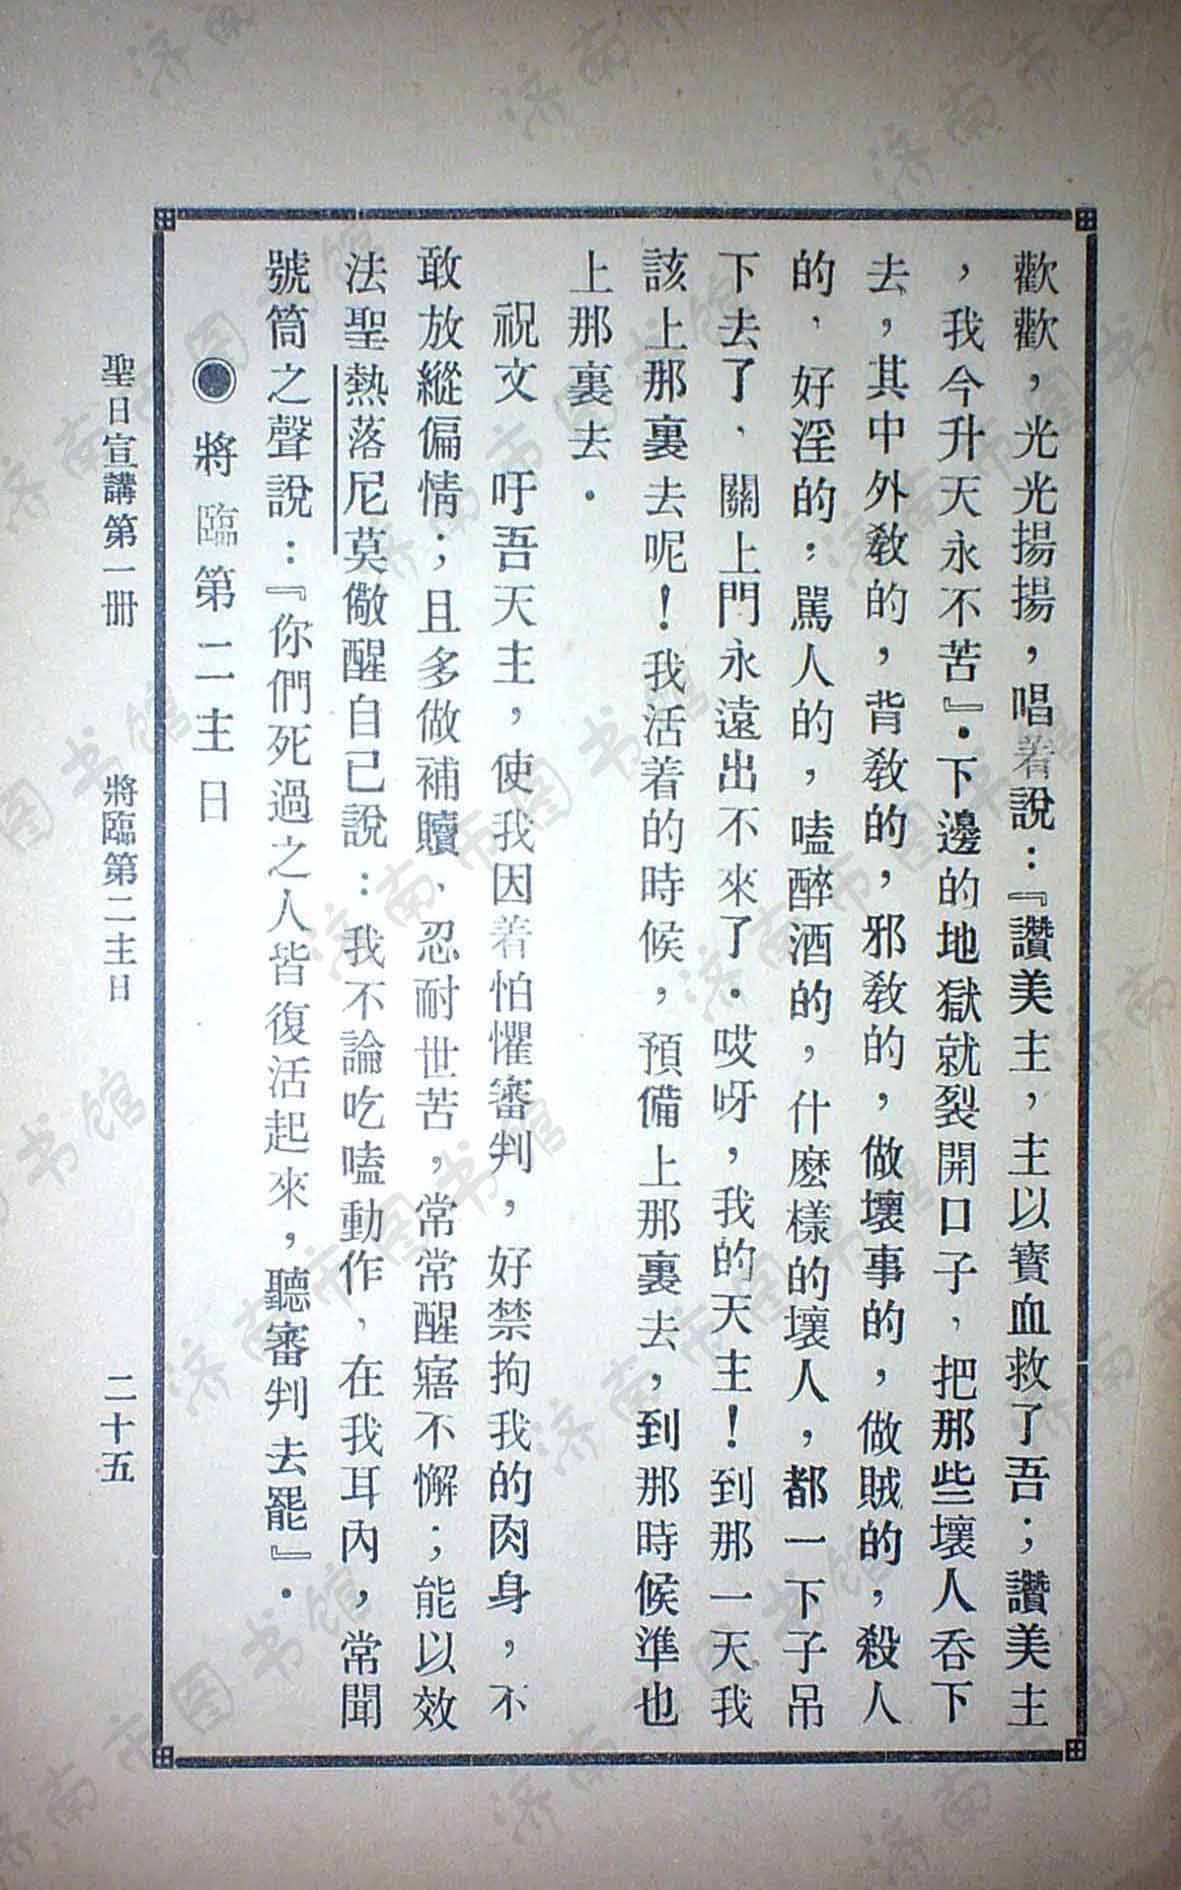 歡歡，光光揚揚，唱着說：『讚美主，主以寳血救了吾；讚美主
，我今升天永不苦』．下邊的地獄就裂開口子，把那些壞人吞下
去，其中外教的，背教的，邪教的，做壞事的，做賊的，殺人
的，好淫的；駡人的，嗑醉酒的，什麽樣的壞人，都一下子吊
下去了，關上門永遠出不來了．哎呀，我的天主！到那一天我
該上那裏去呢！我活着的時候，預備上那裏去，到那時候準也
上那裏去．
祝文　吁吾天主，使我因着怕懼審判，好禁拘我的肉身，不
敢放縱偏情；且多做補贖、忍耐世苦，常常醒寤不懈；能以效
法聖熱落尼莫儆醒自已說：我不論吃嗑動作，在我耳內，常聞
號筒之聲說：『你們死過之人皆復活起來，聽審判去罷』．
◉將臨第二主日
聖日宣講第一册　將臨第二主日　二十五
济南市图书馆